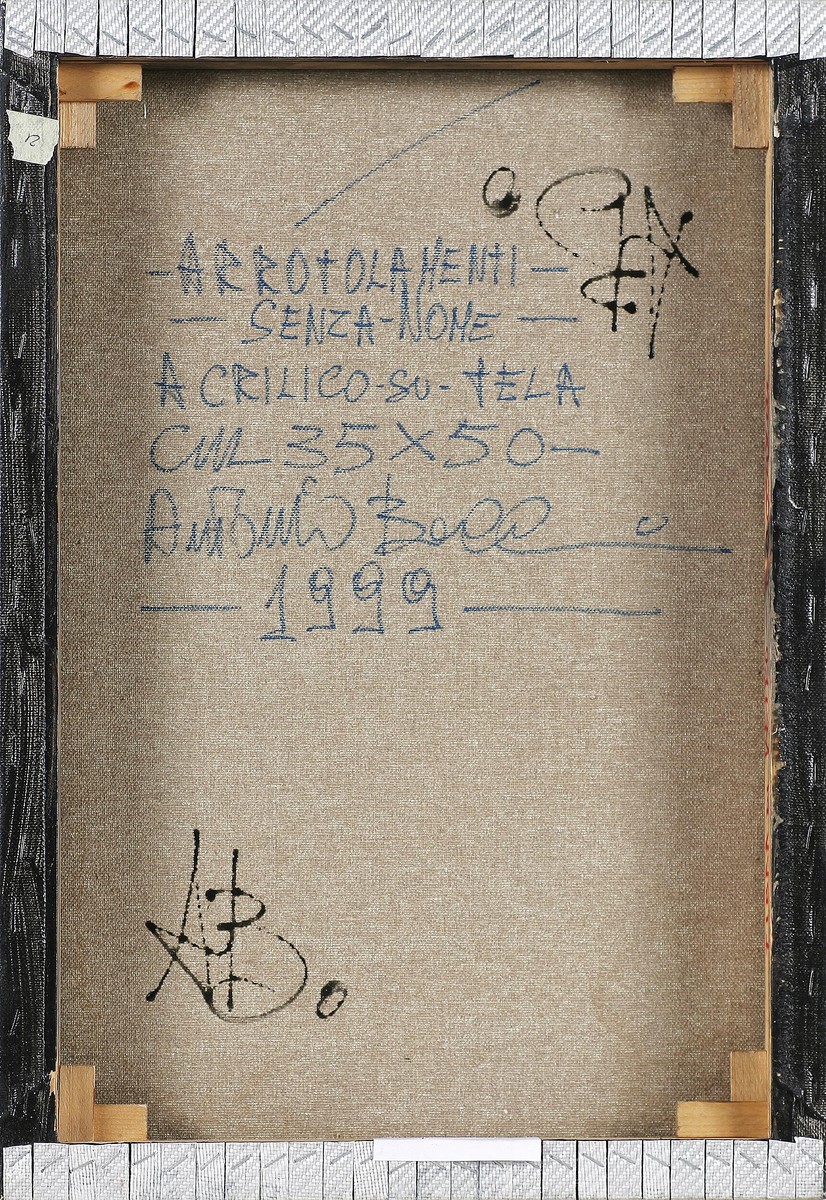 - ARROTOLAMENTI -
- SENZA-NOME -
ACRILICO-SU-TELA
CM 35X50-
Antonio
- 1999 -
AB.